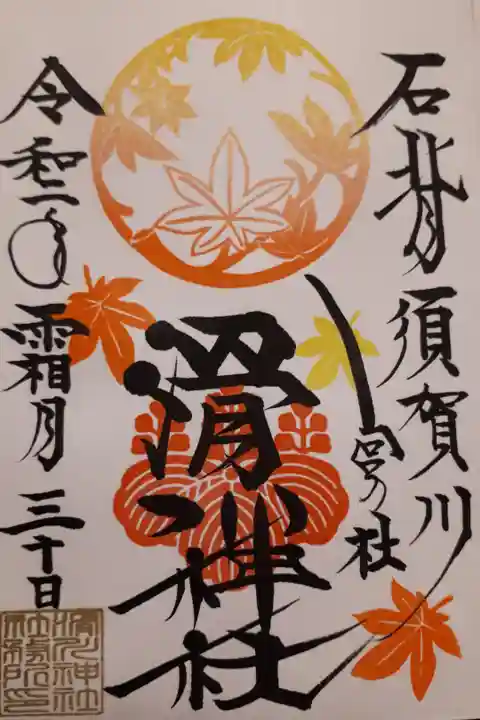 石背須賀川
滑川神社
令和二年霜月三十日
滑川神社
社務所印